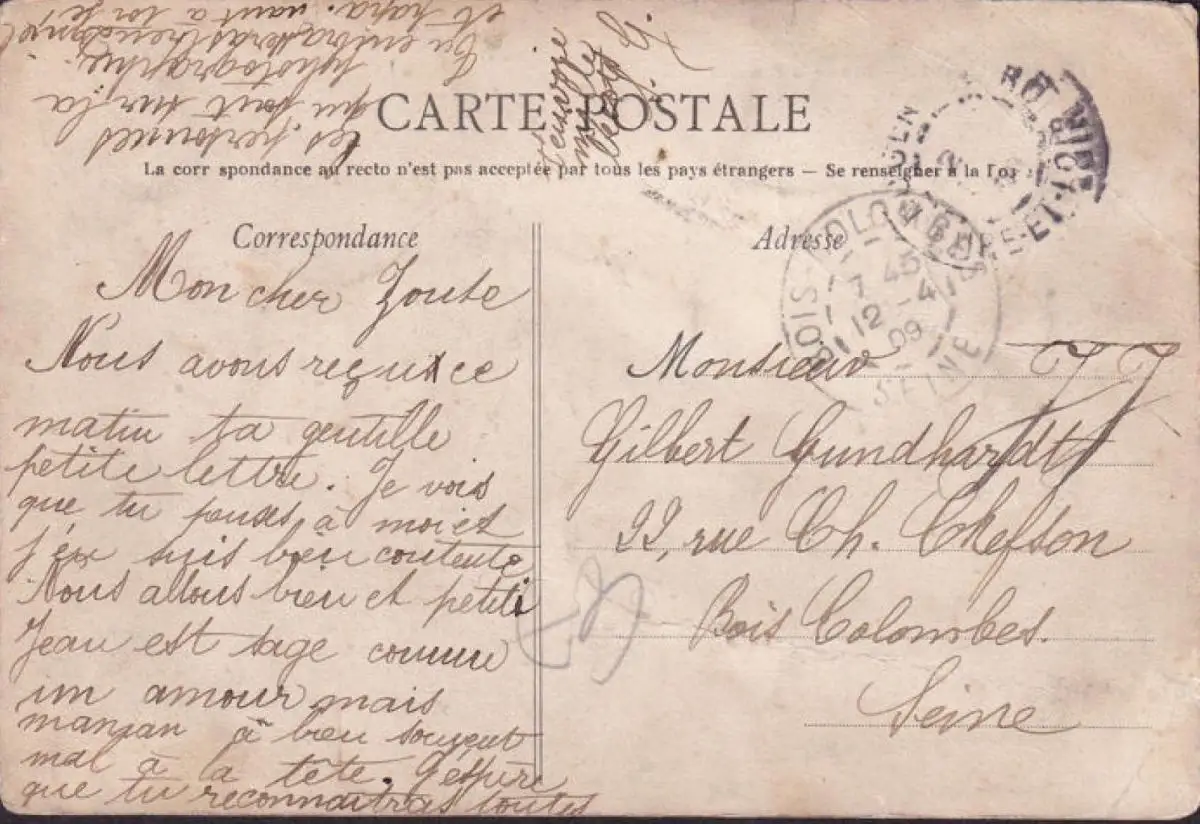 CARTE POSTALE
La corr spondance au recto n'est pas acceptée par tous les pays étrangers — Se renseigner à la Pos
Correspondance
Mon cher Zoute
Nous avons reçu ce
matin ta gentille
petite lettre. Je vois
que tu penses à moi et
j'en suis bien contente
Nous allons bien et petit
Jean est sage comme
un amour mais
maman à bien souvent
mal à la tête. J'espère
que tu reconnaitras toutes
les personnes
qui sont sur la
photographie.
Tu embrasseras
et papa.
mille
Adresse
BOIS-COLOMBES
7 45
12 - 4
09
SEINE
Monsieur
Gilbert Gundhardt
22, rue Ch. Chefson
Bois Colombes.
Seine